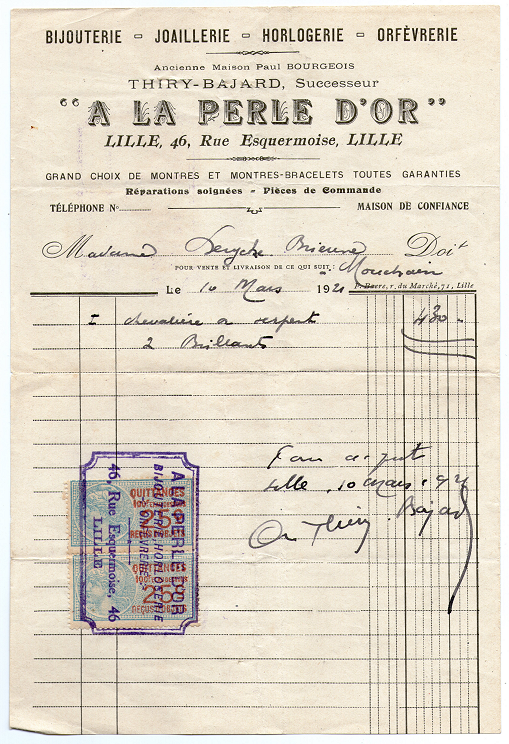 BIJOUTERIE - JOAILLERIE - HORLOGERIE - ORFÈVRERIE
Ancienne Maison Paul BOURGEOIS
THIRY-BAJARD, Successeur
"A LA PERLE D'OR"
LILLE, 46, Rue Esquermoise, LILLE
GRAND CHOIX DE MONTRES ET MONTRES-BRACELETS TOUTES GARANTIES
Réparations soignées - Pièces de Commande
TÉLÉPHONE No MAISON DE CONFIANCE
Madame Brienne Doit
POUR VENTE ET LIVRAISON DE CE QUI SUIT: à Mouchain
Le 10 Mars 1921
P. Barre, r. du Marché, 71, Lille
I chevalière or serpent 430 -
2 Brillants
Pour acquit
Lille, 10 Mars 1921
Thiry Bajard
A LA PERLE D'OR
BIJOUTERIE HORLOGERIE
ORFÈVRERIE
46, Rue Esquermoise, 46
LILLE
QUITTANCES
25c
QUITTANCES
25c